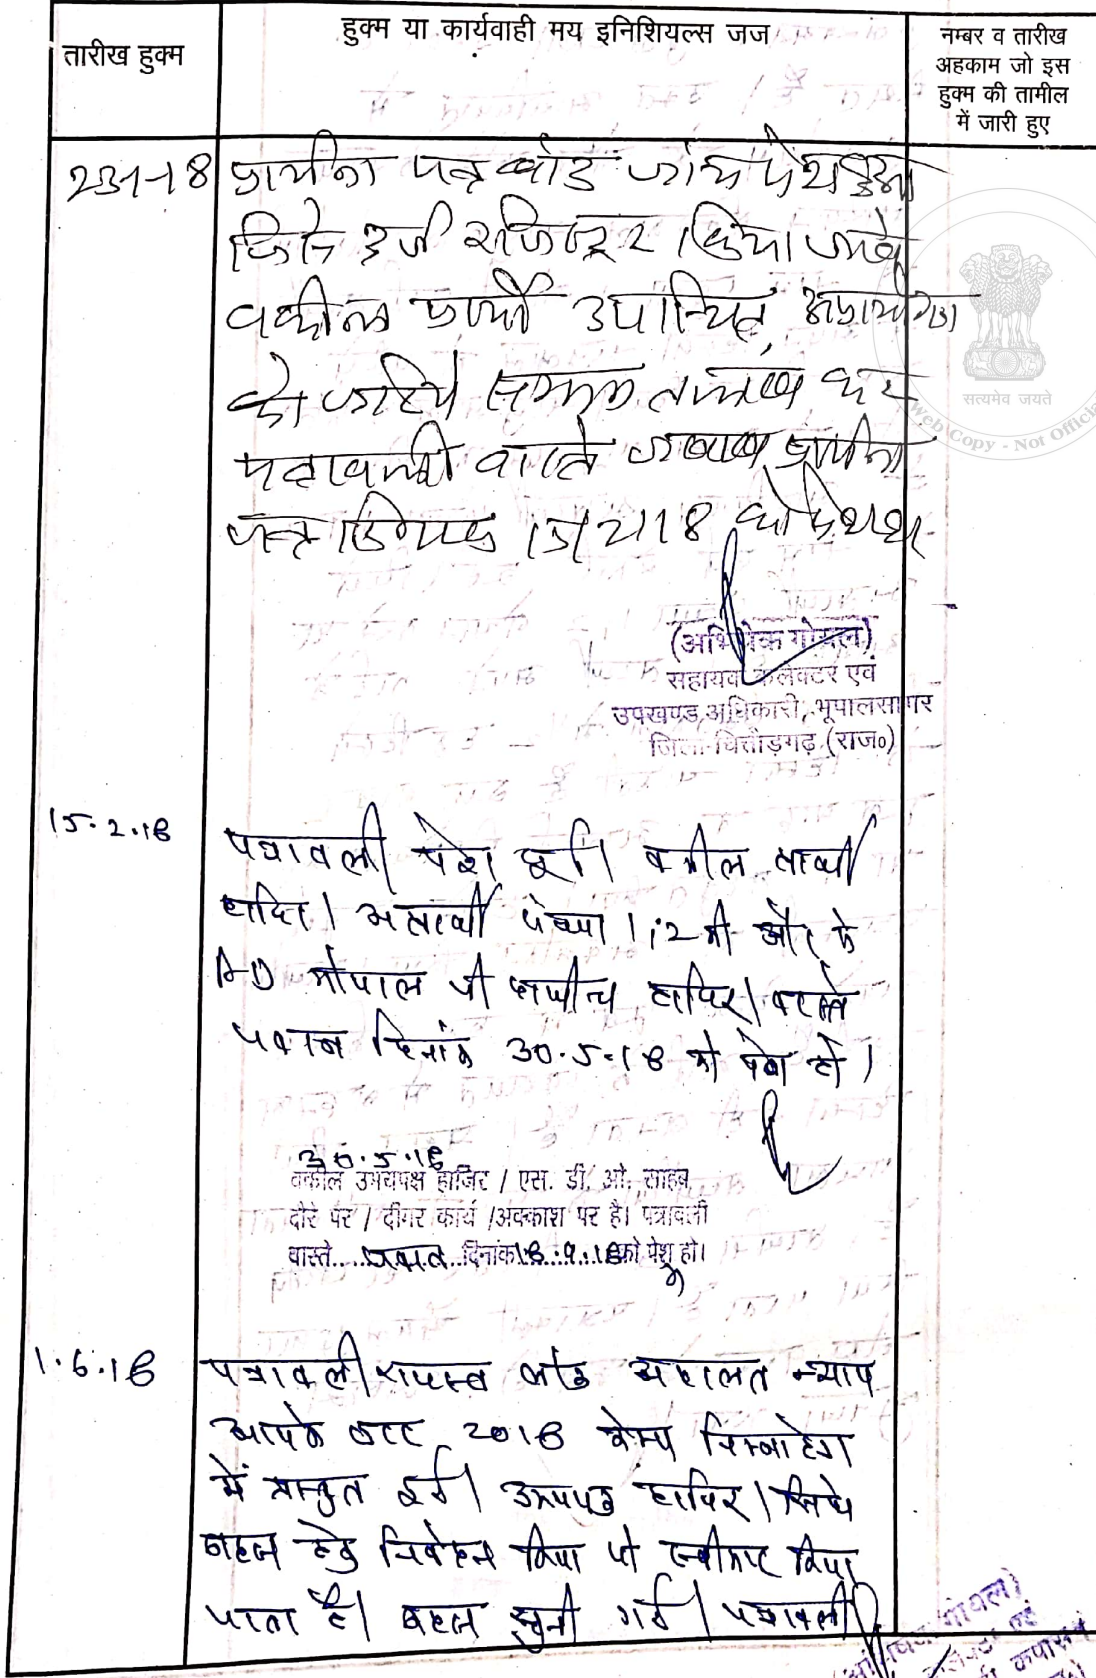 तारीख हुक्म
हुक्म या कार्यवाही मय इनिशियल्स जज
नम्बर व तारीख
अहकाम जो इस
हुक्म की तामील
में जारी हुए
प्रार्थना पत्र बाद जांच पेश हुआ
दर्ज रजिस्टर किया जावे
वकील प्रार्थी उपस्थित, अप्रार्थीगण
को जरिये तलब कर
पत्रावली वास्ते जवाब प्रार्थना
पत्र दिनांक 15/2/18 को पेश
सत्यमेव जयते
Web Copy - Not Official
(अभिषेक गोयल)
सहायक कलेक्टर एवं
उपखण्ड अधिकारी, भूपालसागर
जिला-चित्तौड़गढ़ (राज०)
15.2.18
पत्रावली पेश हुई। वकील प्रार्थी
हाजिर। अप्रार्थी संख्या 1,2 की और से
गोपाल जी हाजिर। वास्ते
जवाब दिनांक 30.5.18 को पेश हो।
30.5.18
वकील उभयपक्ष हाजिर / एस. डी. ओ. साहब
दौरे पर / दीगर कार्य /अवकाश पर है। पत्रावली
वास्ते.....जवाब...दिनांक18.9.18को पेश हो।
1.6.18
पत्रावली राजस्व लोक अदालत न्याय
आपके द्वार 2018 केम्प
में प्रस्तुत हुई। उभयपक्ष हाजिर।
बहस हेतु निवेदन किया जो स्वीकार किया
जाता है। बहस सुनी गई। पत्रावली